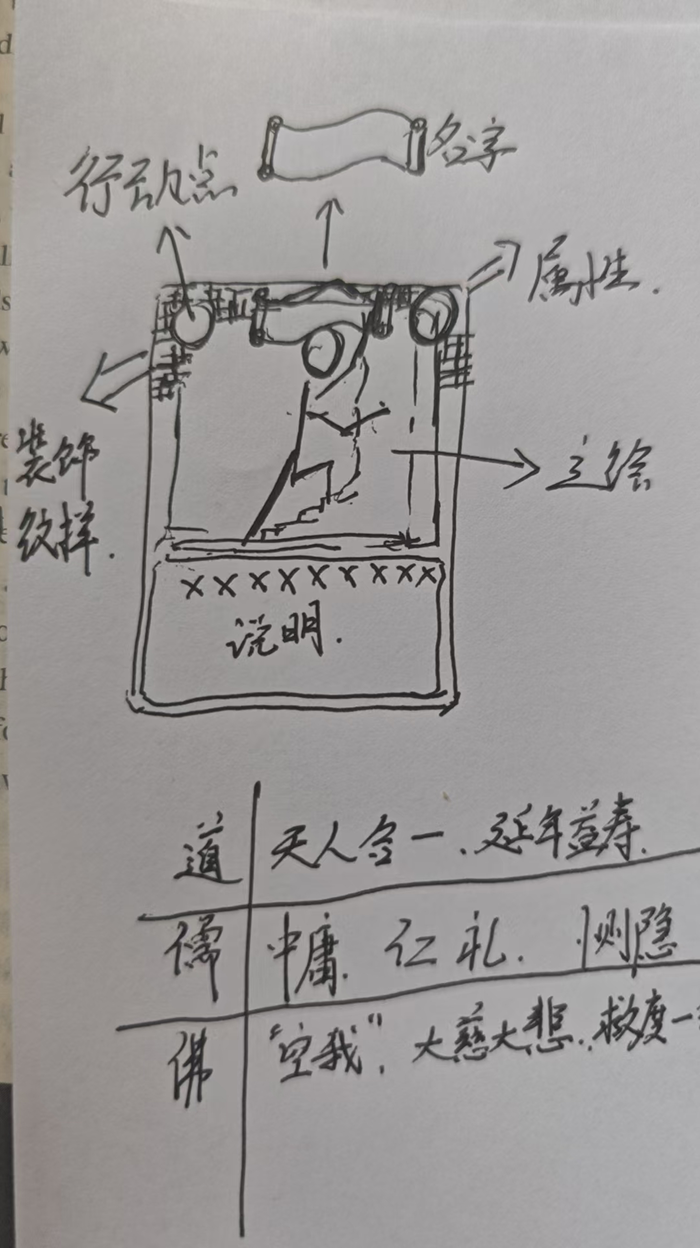 名字
行动点
属性.
装饰
纹样.
主绘
××××××××××
说明.
道 天人合一、延年益寿.
儒 中庸. 仁 礼. 恻隐
佛 “空我”. 大慈大悲. 救度一